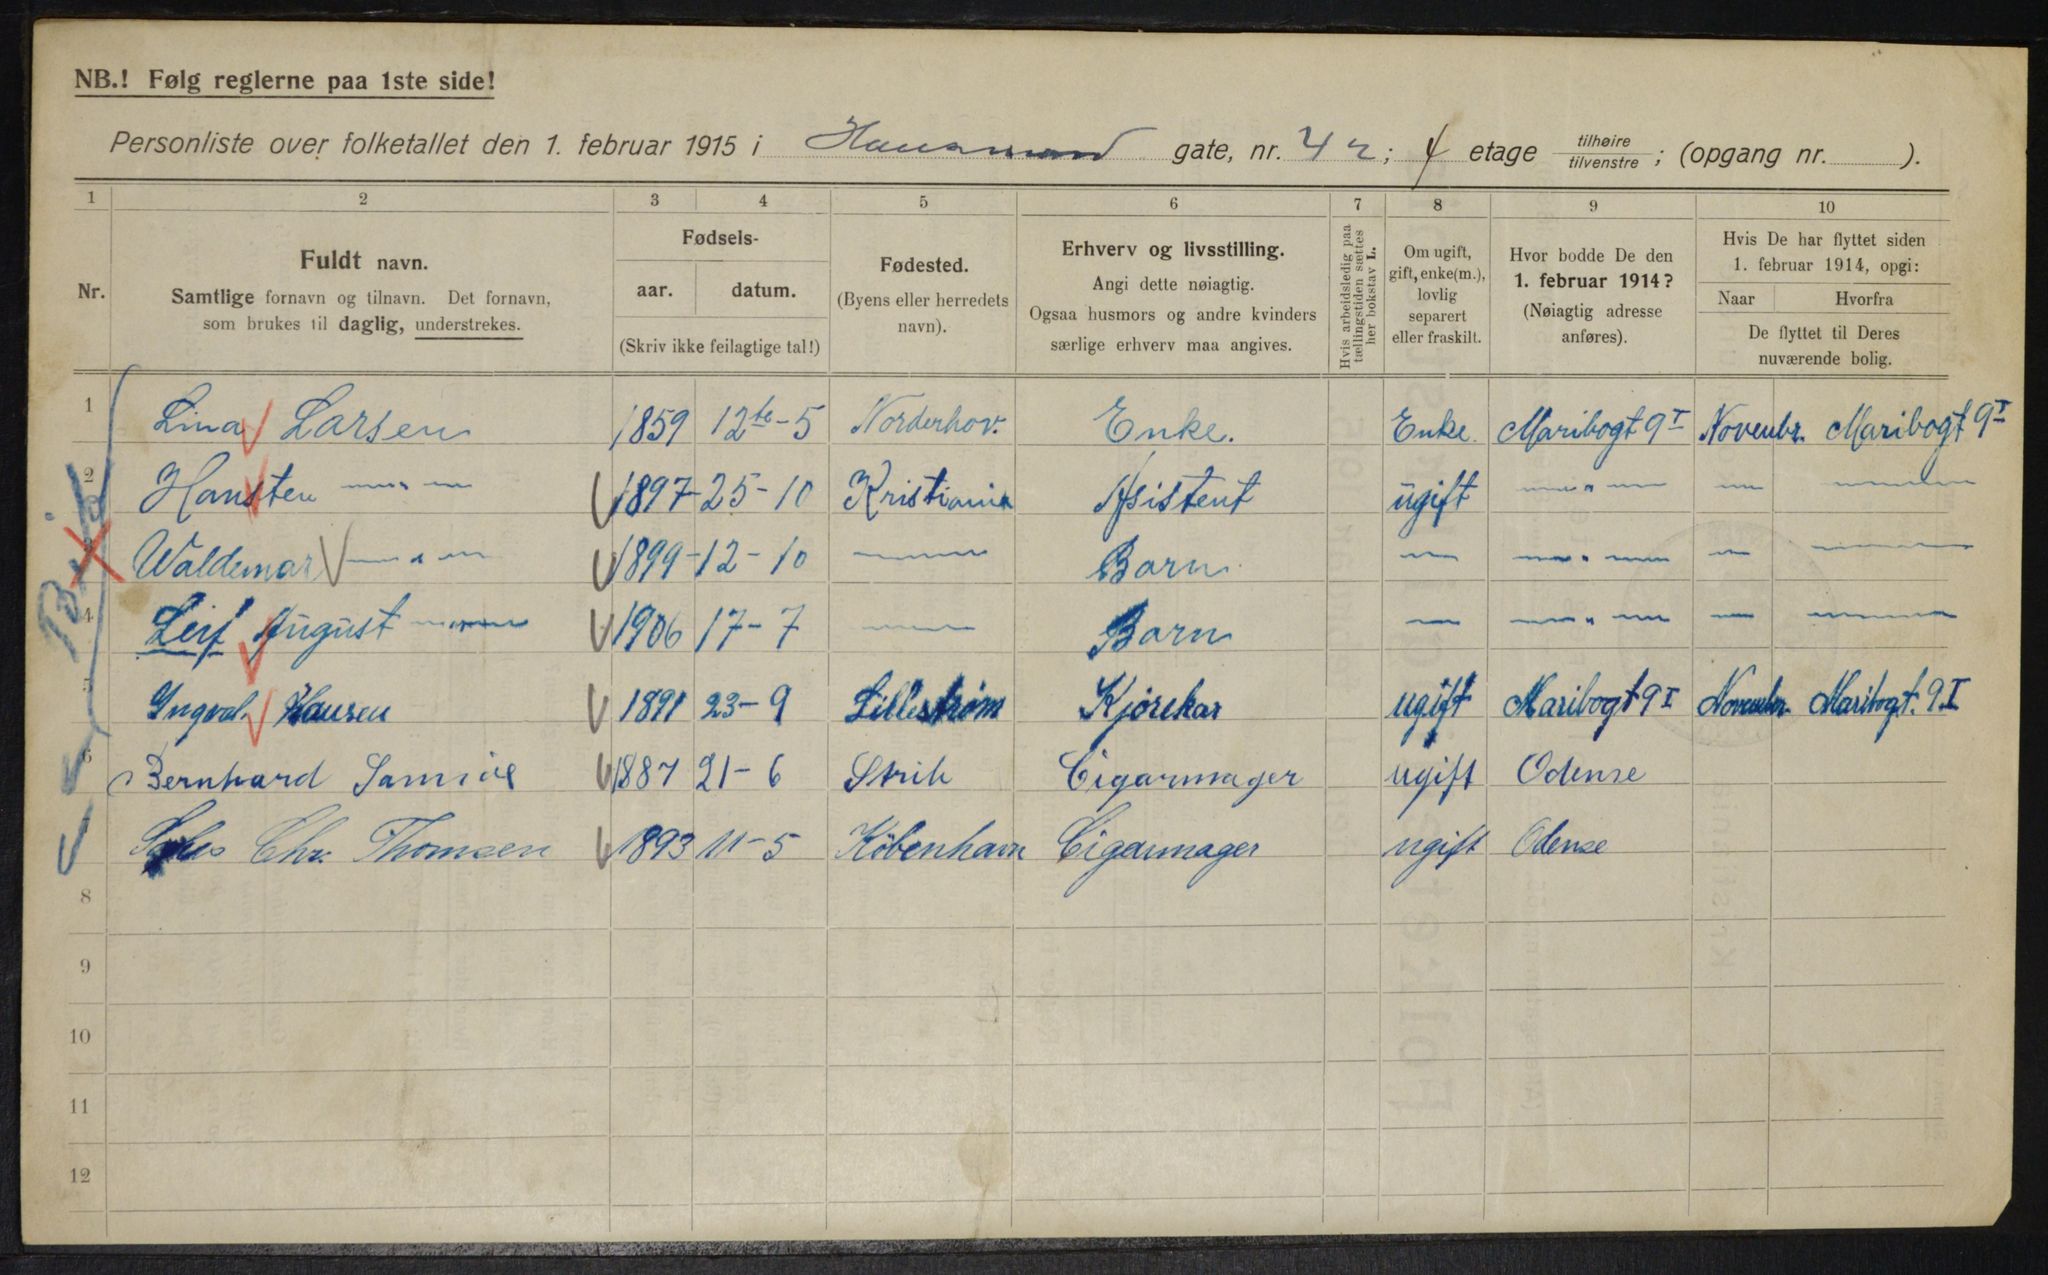 NB.! Følg reglerne paa 1ste side!
Personliste over folketallet den 1. februar 1915 i Hausmand gate, nr. 42; 4 etage tilhøire tilvenstre; (opgang nr. ).
1 2 3 4 5 6 7 8 9 10
Nr.
Fuldt navn.
Samtlige fornavn og tilnavn. Det fornavn,
som brukes til daglig, understrekes.
Fødsels-
aar. datum.
(Skriv ikke feilagtige tal!)
Fødested.
(Byens eller herredets
navn).
Erhverv og livsstilling.
Angi dette nøiagtig.
Ogsaa husmors og andre kvinders
særlige erhverv maa angives.
Hvis arbeidsledig paa
tællingstiden sættes
her bokstav L.
Om ugift,
gift, enke(m.),
lovlig
separert
eller fraskilt.
Hvor bodde De den
1. februar 1914?
(Nøiagtig adresse
anføres).
Hvis De har flyttet siden
1. februar 1914, opgi:
Naar Hvorfra
De flyttet til Deres
nuværende bolig.
1 Lina Larsen 1859 12te-5 Norderhov. Enke. Enke Maribogt 9 I Novenbr. Maribogt 9 I
2 Hansten —"— 1897-25-10 Kristiania Asistent ugift —"— — —
3 Waldemar —"— 1899-12-10 — Barn — —"— — —
4 Leif August — 1906 17-7 — Barn — —"— — —
5 Ingval. Hansen 1891 23-9 Lillestrøm Kjørekar ugift Maribogt 9 I Novenbr Maribogt. 9. I
6 Bernhard 1887 21-6 Strib Cigarmager ugift Odense
Chr. Thomsen 1893 11-5 København Cigarmager ugift Odense
8
9
10
11
12